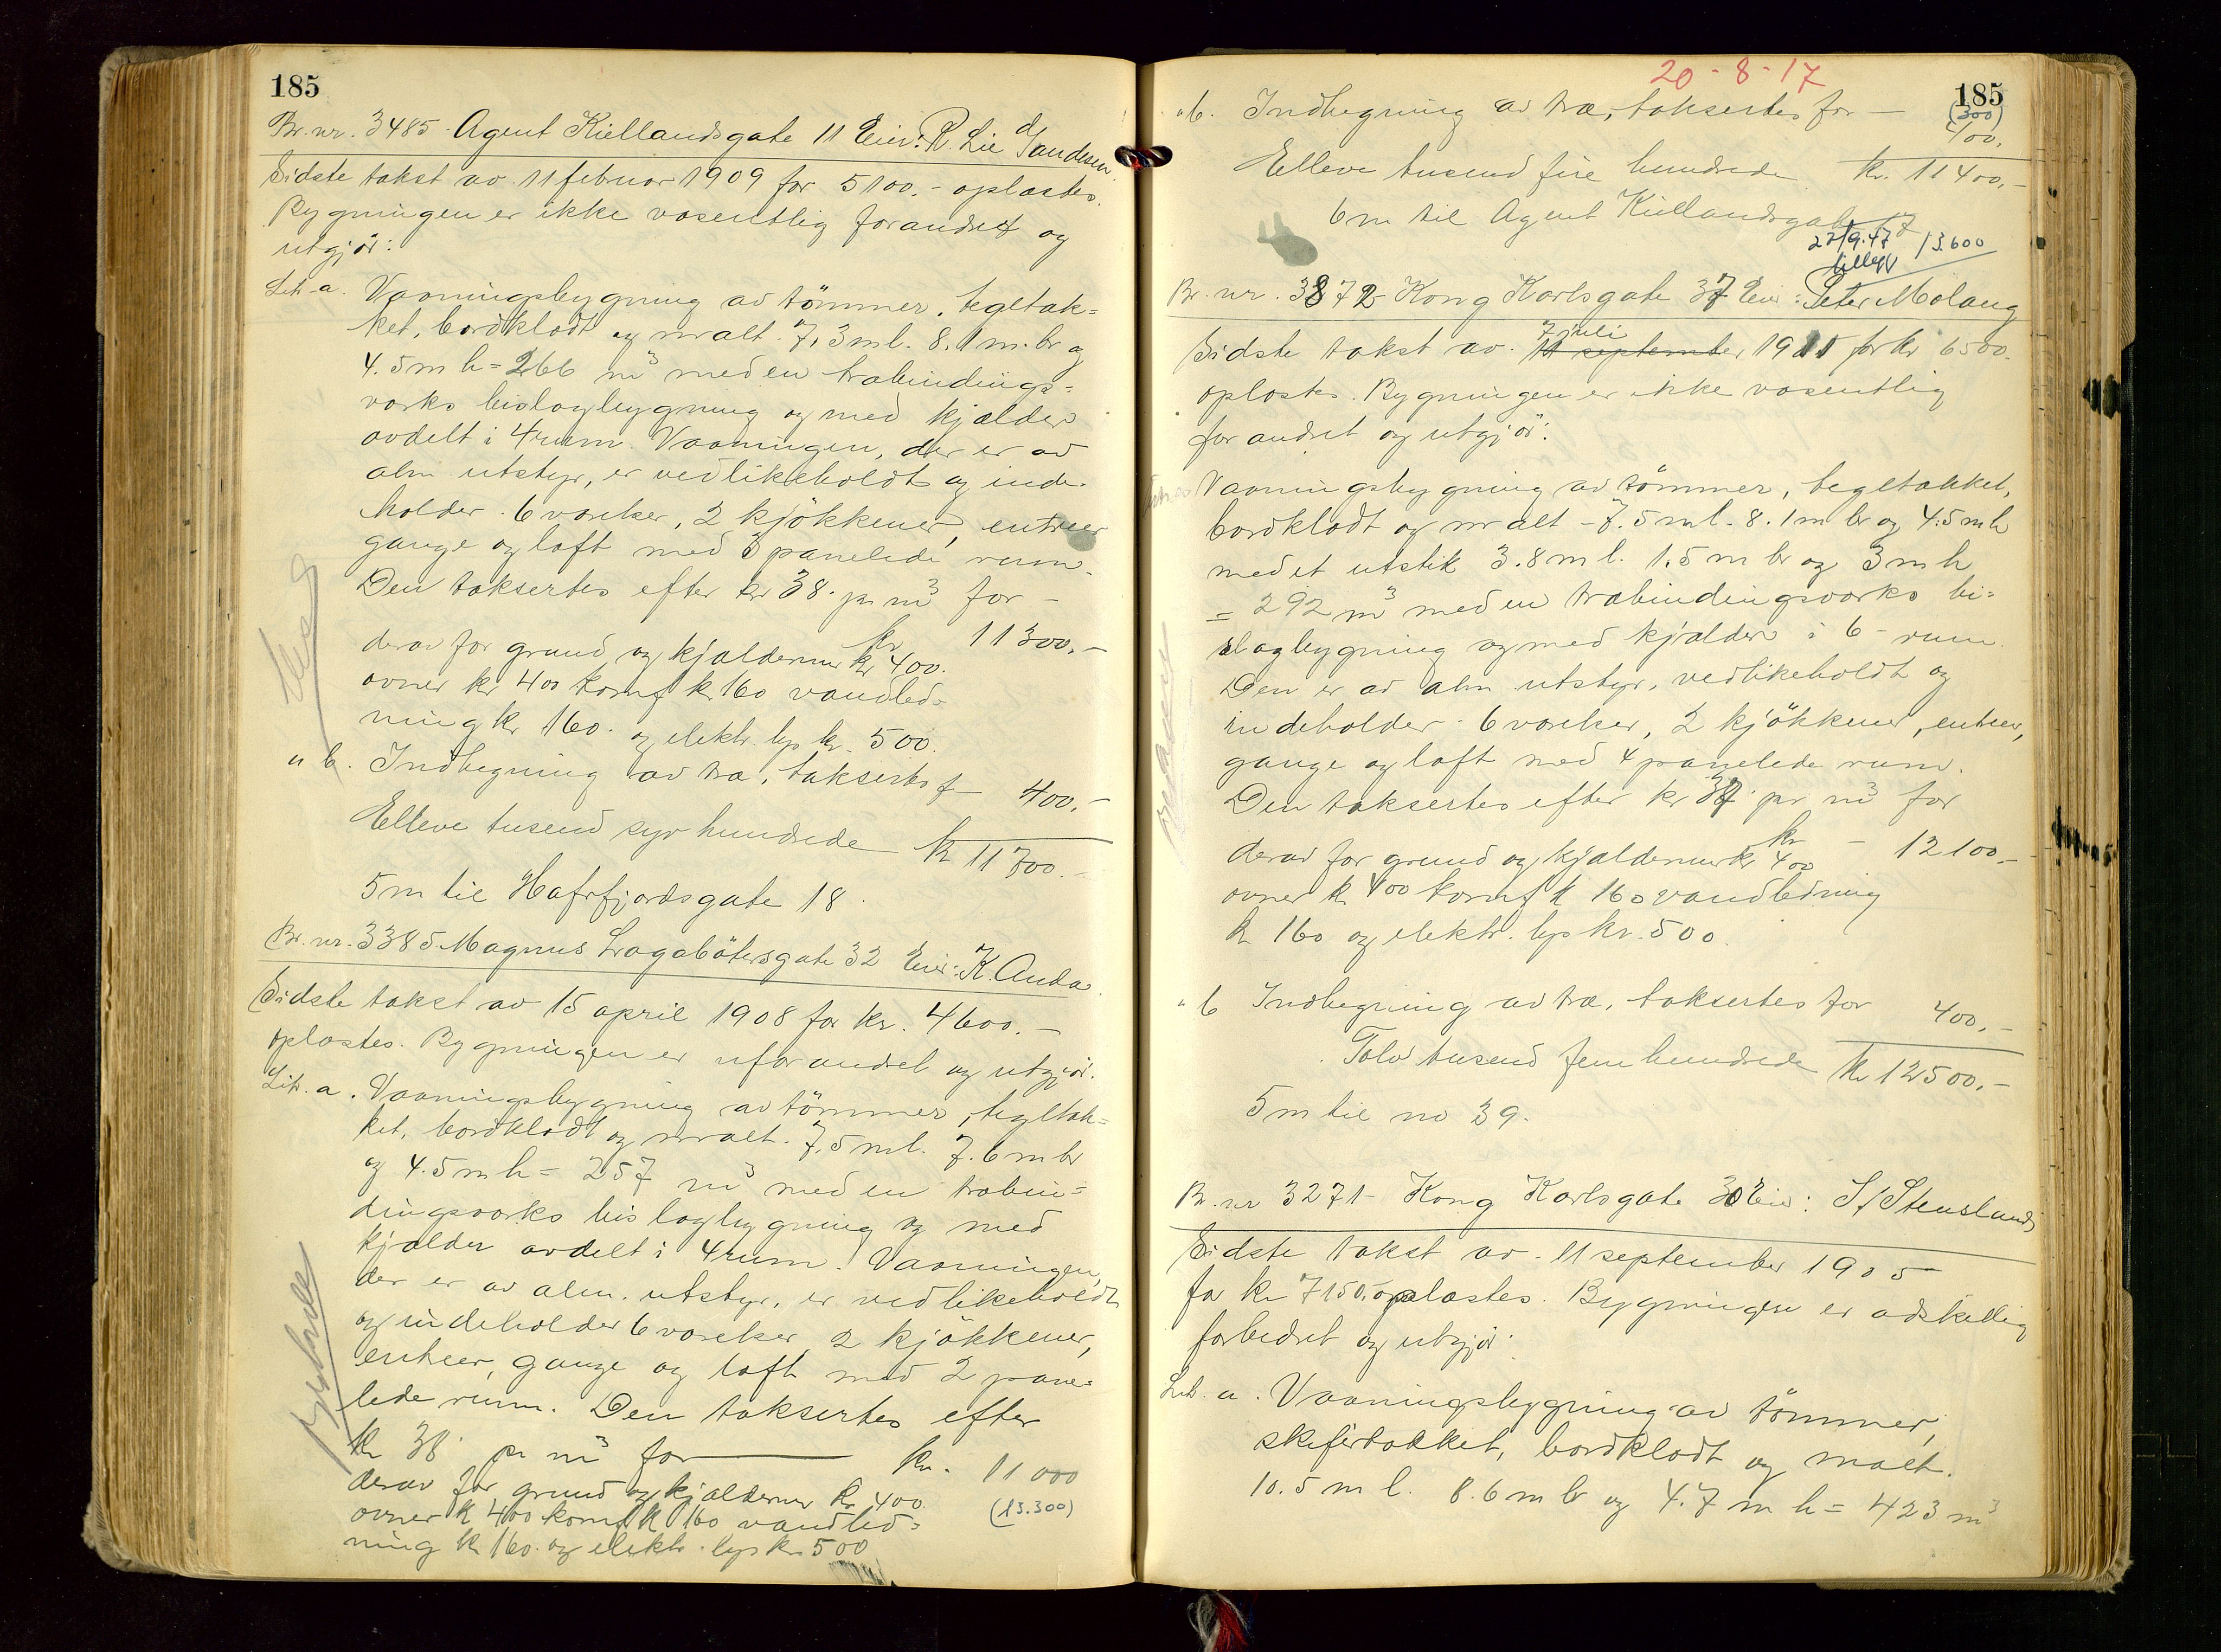 185
Br. nr. 3485 Agent Kiellandsgate 11 Eier: R. Lie
Sidste takst av 11 februar 1909 for 5100.- oplæstes.
Bygningen er ikke væsentlig forandret og
utgjör:
Lit. a. Vaaningsbygning av tömmer, tegltak=
ket, bordklædt og malt. 7,3 m l. 8.1 m. br og
4.5 m h = 266 m³ med en træbindings=
værks bislagbygning og med kjælder
avdelt i 4 rum. Vaaningen, der er av
alm utstyr, er vedlikeholdt og inde-
holder 6 værelser, 2 kjökkener, entreer
gange og loft med 3 panelede rum.
Den taksertes efter kr 38. pr m³ for -
kr 11300.-
derav for grund og kjældermur kr 400.
ovner kr 400 komf k 160 vandled=
ning kr 160. og elektr. lys kr. 500.
" b. Indhegning av træ, taksertes f - 400.-
Elleve tusend syv hundrede kr 11700.-
5 m til Hafrfjordsgate 18.
Br. nr. 3385 Magnus Lagabötersgate 32 Eier: K. Anda.
Sidste takst av 15 april 1908 for kr. 4600.-
oplæstes. Bygningen er uforandret og utgjör.
Lit. a. Vaaningsbygning av tömmer, tegltak=
ket, bordklædt og malt. 7,5 m l. 7.6 m br
og 4.5 m h = 257 m³ med en træbin=
dingsværks bislagbygning og med
kjælder avdelt i 4 rum. Vaaningen,
der er av alm. utstyr, er vedlikeholdt
og indeholder 6 værelser 2 kjökkener,
entreer, gange og loft med 2 pane=
lede rum. Den taksertes efter
kr 38 pr m³ for kr. 11000
derav for grund og kjældermur kr 400.
(13.300)
ovner k 400 komf k 160 vandled=
ning kr 160. og elektr. lys kr 500
20-8-17
185
" b. Indhegning av træ, taksertes for -
(300)
400.
Elleve tusend fire hundrede kr. 11400.-
6 m til Agent Kiellandsgate 17
22/9.47 13.600
tillegg
Br. nr. 3872 Kong Karlsgate 37 Eier: Peter Molaug
7 juli
Sidste takst av 11 september 1915 for kr 6500.
oplæstes. Bygningen er ikke væsentlig
forandret og utgjör:
Vaaningsbygning av tömmer, tegltakket,
bordklædt og malt - 7.5 m l. 8.1 m br og 4.5 m h
med et utstik 3.8 m l. 1.5 m br og 3 m h
= 292 m³ med en træbindingsværks bi=
slagbygning og med kjælder i 6 rum.
Den er av alm utstyr, vedlikeholdt og
indeholder 6 værelser, 2 kjökkener, entreer,
gange og loft med 4 panelede rum.
Den taksertes efter kr 37 pr m³ for
kr - 12100.-
derav for grund og kjældermur kr 400
ovner k 400 komf k 160 vandledning
k 160 og elektr. lys kr. 500.
" b Indhegning av træ, taksertes for 400.-
Tolv tusend fem hundrede kr 12500.-
5 m til no 39.
Br. nr 3271 Kong Karlsgate 30 Eier: S. Stensland
Sidste takst av 11 september 1905
for kr 7150.- oplæstes. Bygningen er adskillig
forbedret og utgjör:
Lit. a. Vaaningsbygning av tömmer,
skifertakket, bordklædt og malt.
10.5 m l. 8.6 m br og 4.7 m h = 423 m³